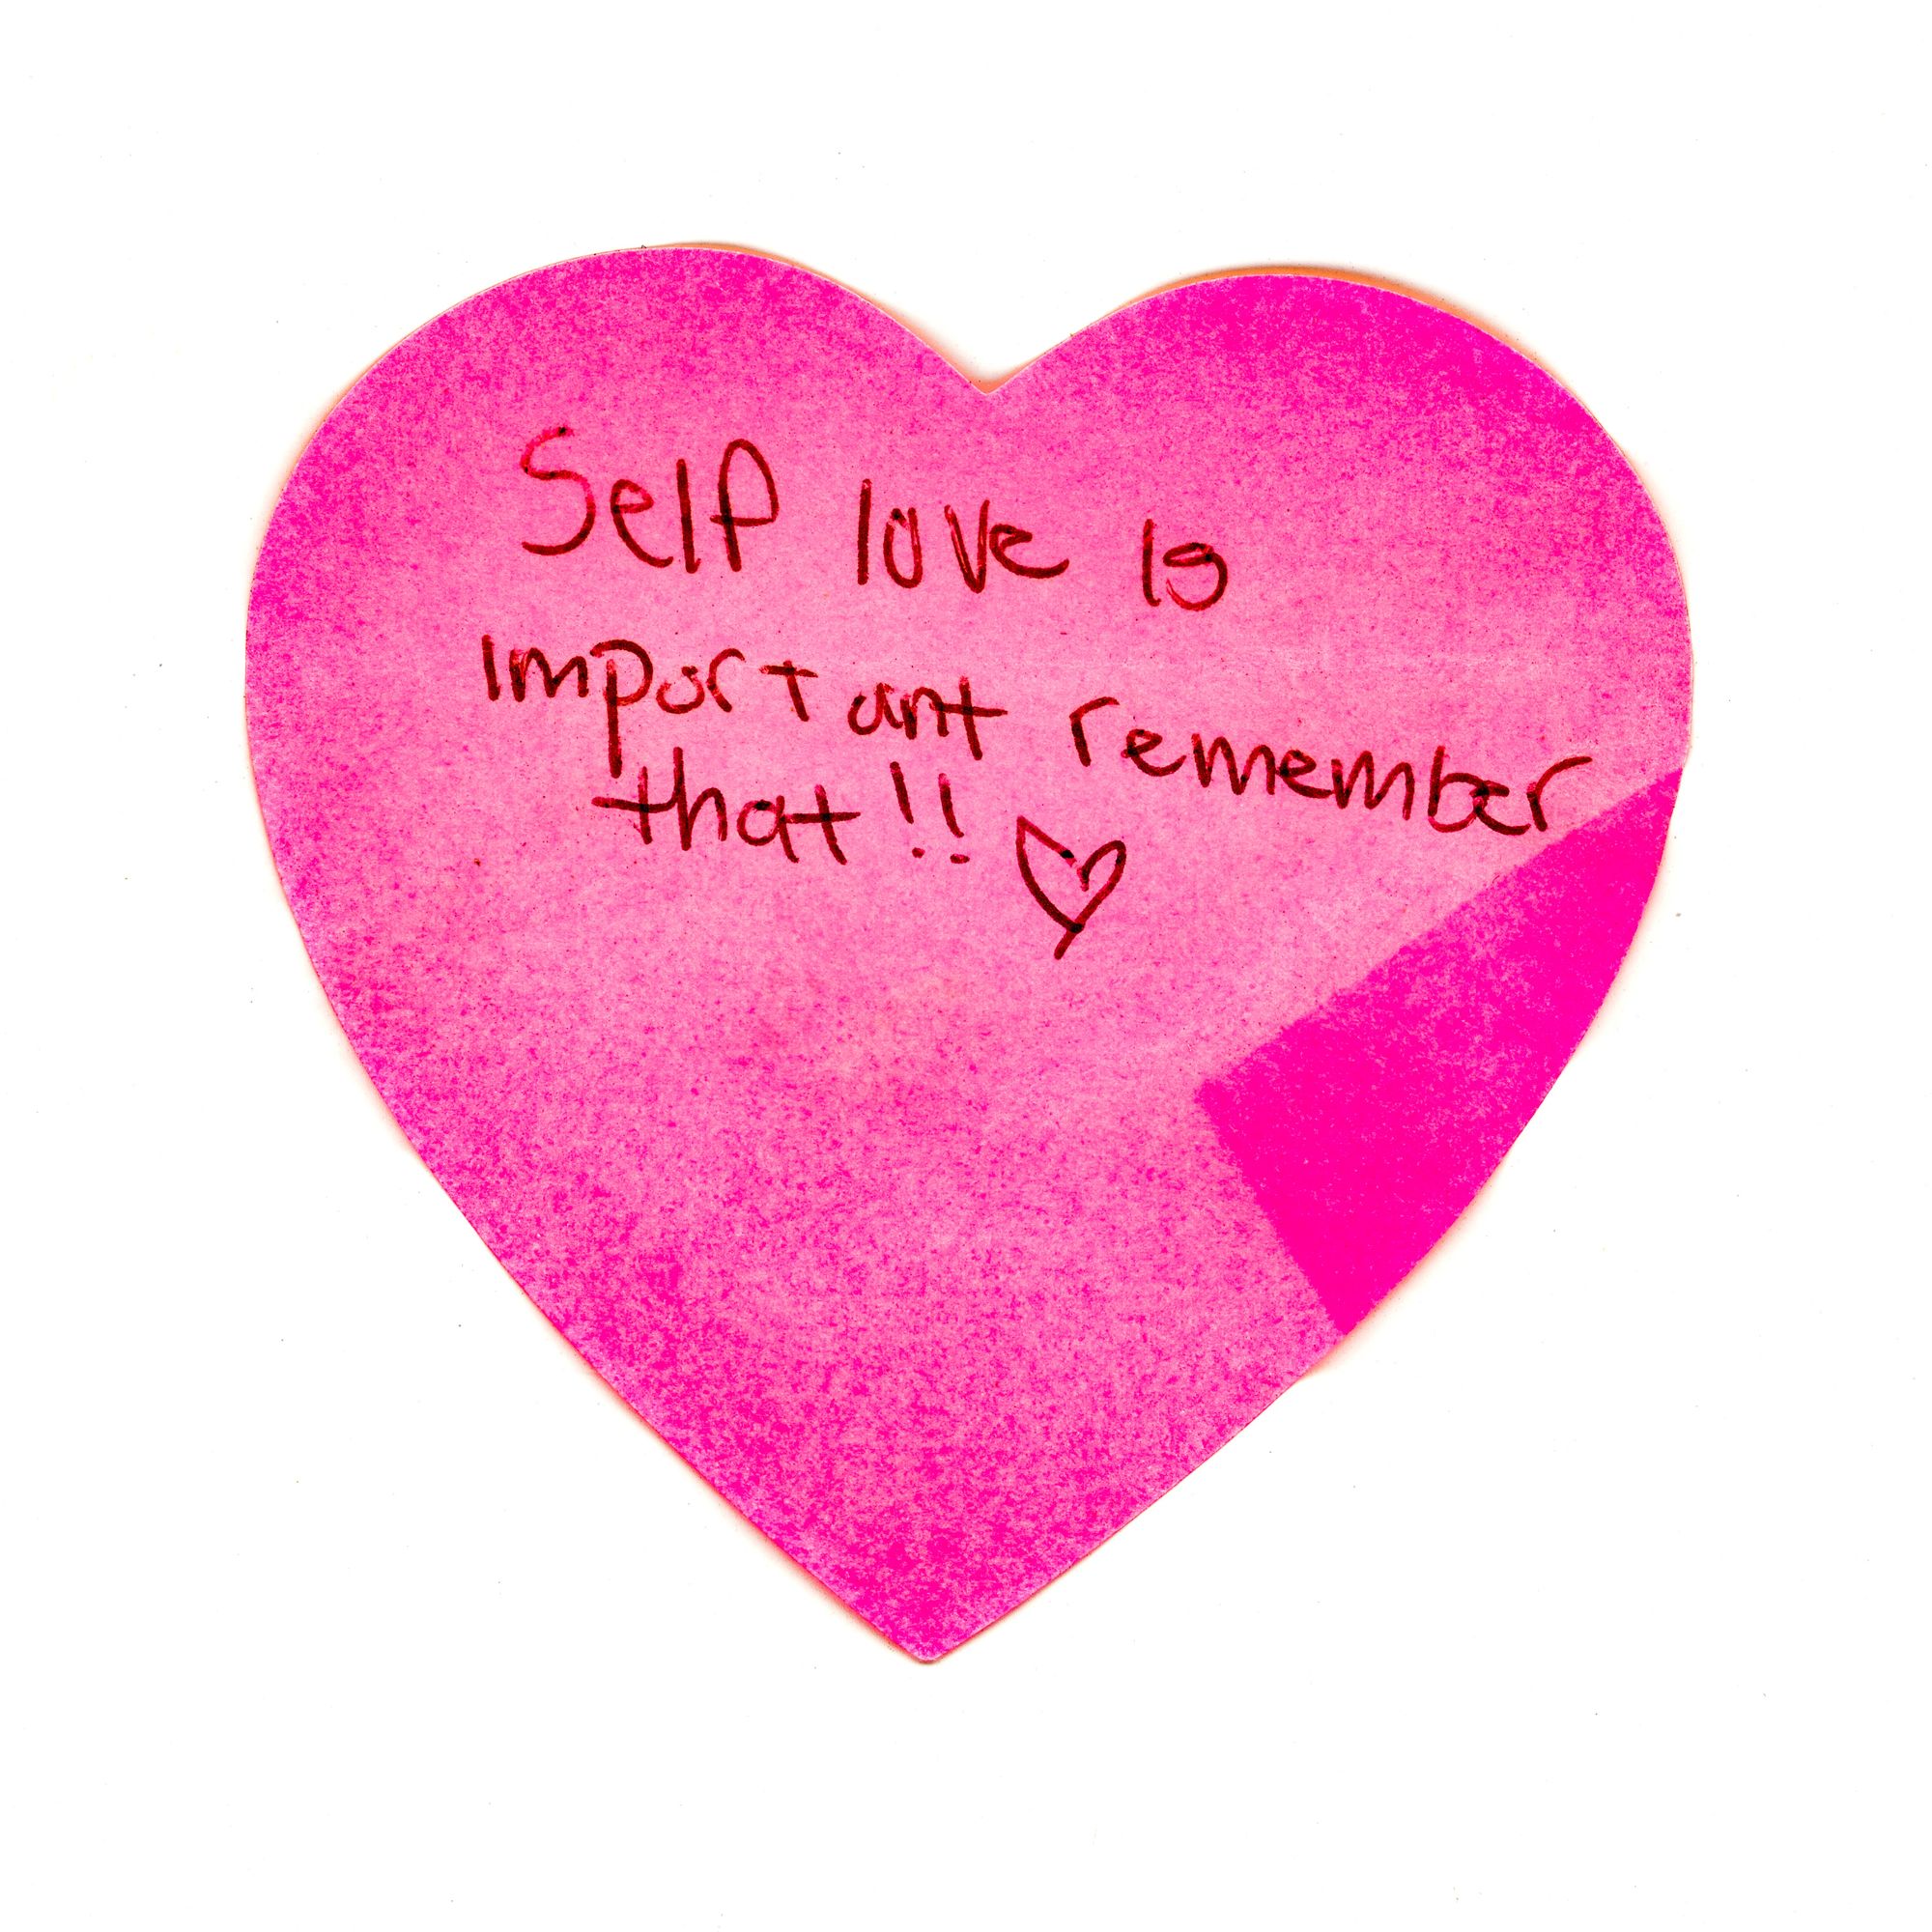 Self love is
important remember
that!! ♡